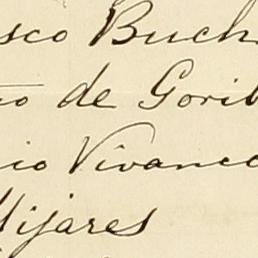 sco Buch
io de Gorib
io Vivanco
Mijares